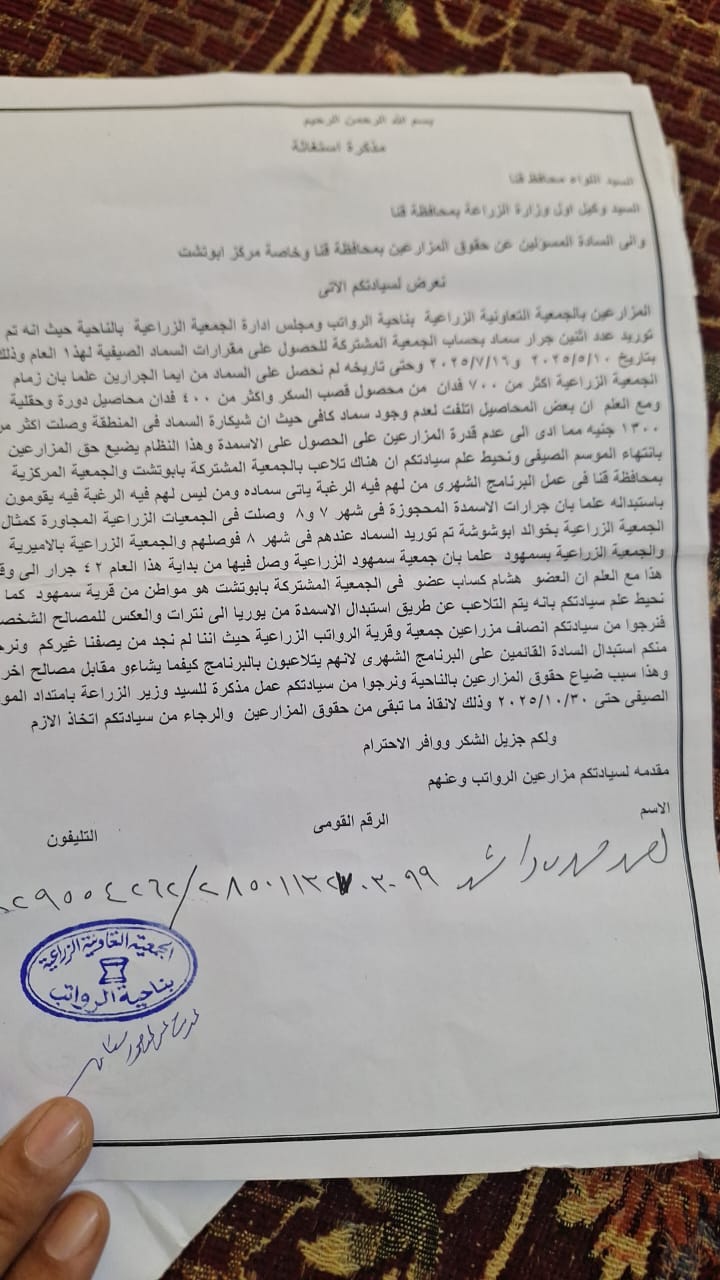 بسم الله الرحمن الرحيم
مذكرة استغاثة
السيد اللواء محافظ قنا
السيد وكيل اول وزارة الزراعة بمحافظة قنا
والى السادة المسؤلين عن حقوق المزارعين بمحافظة قنا وخاصة مركز ابوتشت
نعرض لسيادتكم الاتى
المزارعين بالجمعية التعاونية الزراعية بناحية الرواتب ومجلس ادارة الجمعية الزراعية بالناحية حيث انه تم
توريد عدد اثنين جرار سماد بحساب الجمعية المشتركة للحصول على مقرارات السماد الصيفية لهذا العام وذلك
بتاريخ ٢٠٢٥/٥/١٠ و٢٠٢٥/٧/١٦ وحتى تاريخه لم نحصل على السماد من ايما الجرارين علما بان زمام
الجمعية الزراعية اكثر من ٧٠٠ فدان من محصول قصب السكر واكثر من ٤٠٠ فدان محاصيل دورة وحقلية
ومع العلم ان بعض المحاصيل اتلفت لعدم وجود سماد كافى حيث ان شيكارة السماد فى المنطقة وصلت اكثر من
١٣٠٠ جنيه مما ادى الى عدم قدرة المزارعين على الحصول على الاسمدة وهذا النظام يضيع حق المزارعين
بانتهاء الموسم الصيفى ونحيط علم سيادتكم ان هناك تلاعب بالجمعية المشتركة بابوتشت والجمعية المركزية
بمحافظة قنا فى عمل البرنامج الشهرى من لهم فيه الرغبة ياتى سماده ومن ليس لهم فيه الرغبة فيه يقومون
باستبداله علما بان جرارات الاسمدة المحجوزة فى شهر ٧ و٨ وصلت فى الجمعيات الزراعية المجاورة كمثال
الجمعية الزراعية بخوالد ابوشوشة تم توريد السماد عندهم فى شهر ٨ فوصلهم والجمعية الزراعية بالاميرية
والجمعية الزراعية بسمهود علما بان جمعية سمهود الزراعية وصل فيها من بداية هذا العام ٤٢ جرار الى
هذا مع العلم ان العضو هشام كساب عضو فى الجمعية المشتركة بابوتشت هو مواطن من قرية سمهود كما
نحيط علم سيادتكم بانه يتم التلاعب عن طريق استبدال الاسمدة من يوريا الى نترات والعكس للمصالح
فنرجوا من سيادتكم انصاف مزارعين جمعية وقرية الرواتب الزراعية حيث اننا لم نجد من يصفنا غيركم
منكم استبدال السادة القائمين على البرنامج الشهرى لانهم يتلاعبون بالبرنامج كيفما يشاءو مقابل مصالح
وهذا سبب ضياع حقوق المزارعين بالناحية ونرجوا من سيادتكم عمل مذكرة للسيد وزير الزراعة بامتداد
الصيفى حتى ٢٠٢٥/١٠/٣٠ وذلك لانقاذ ما تبقى من حقوق المزارعين والرجاء من سيادتكم اتخاذ الازم
ولكم جزيل الشكر ووافر الاحترام
مقدمه لسيادتكم مزارعين الرواتب وعنهم
الاسم الرقم القومى التليفون
الجمعية التعاونية الزراعية
بناحية الرواتب